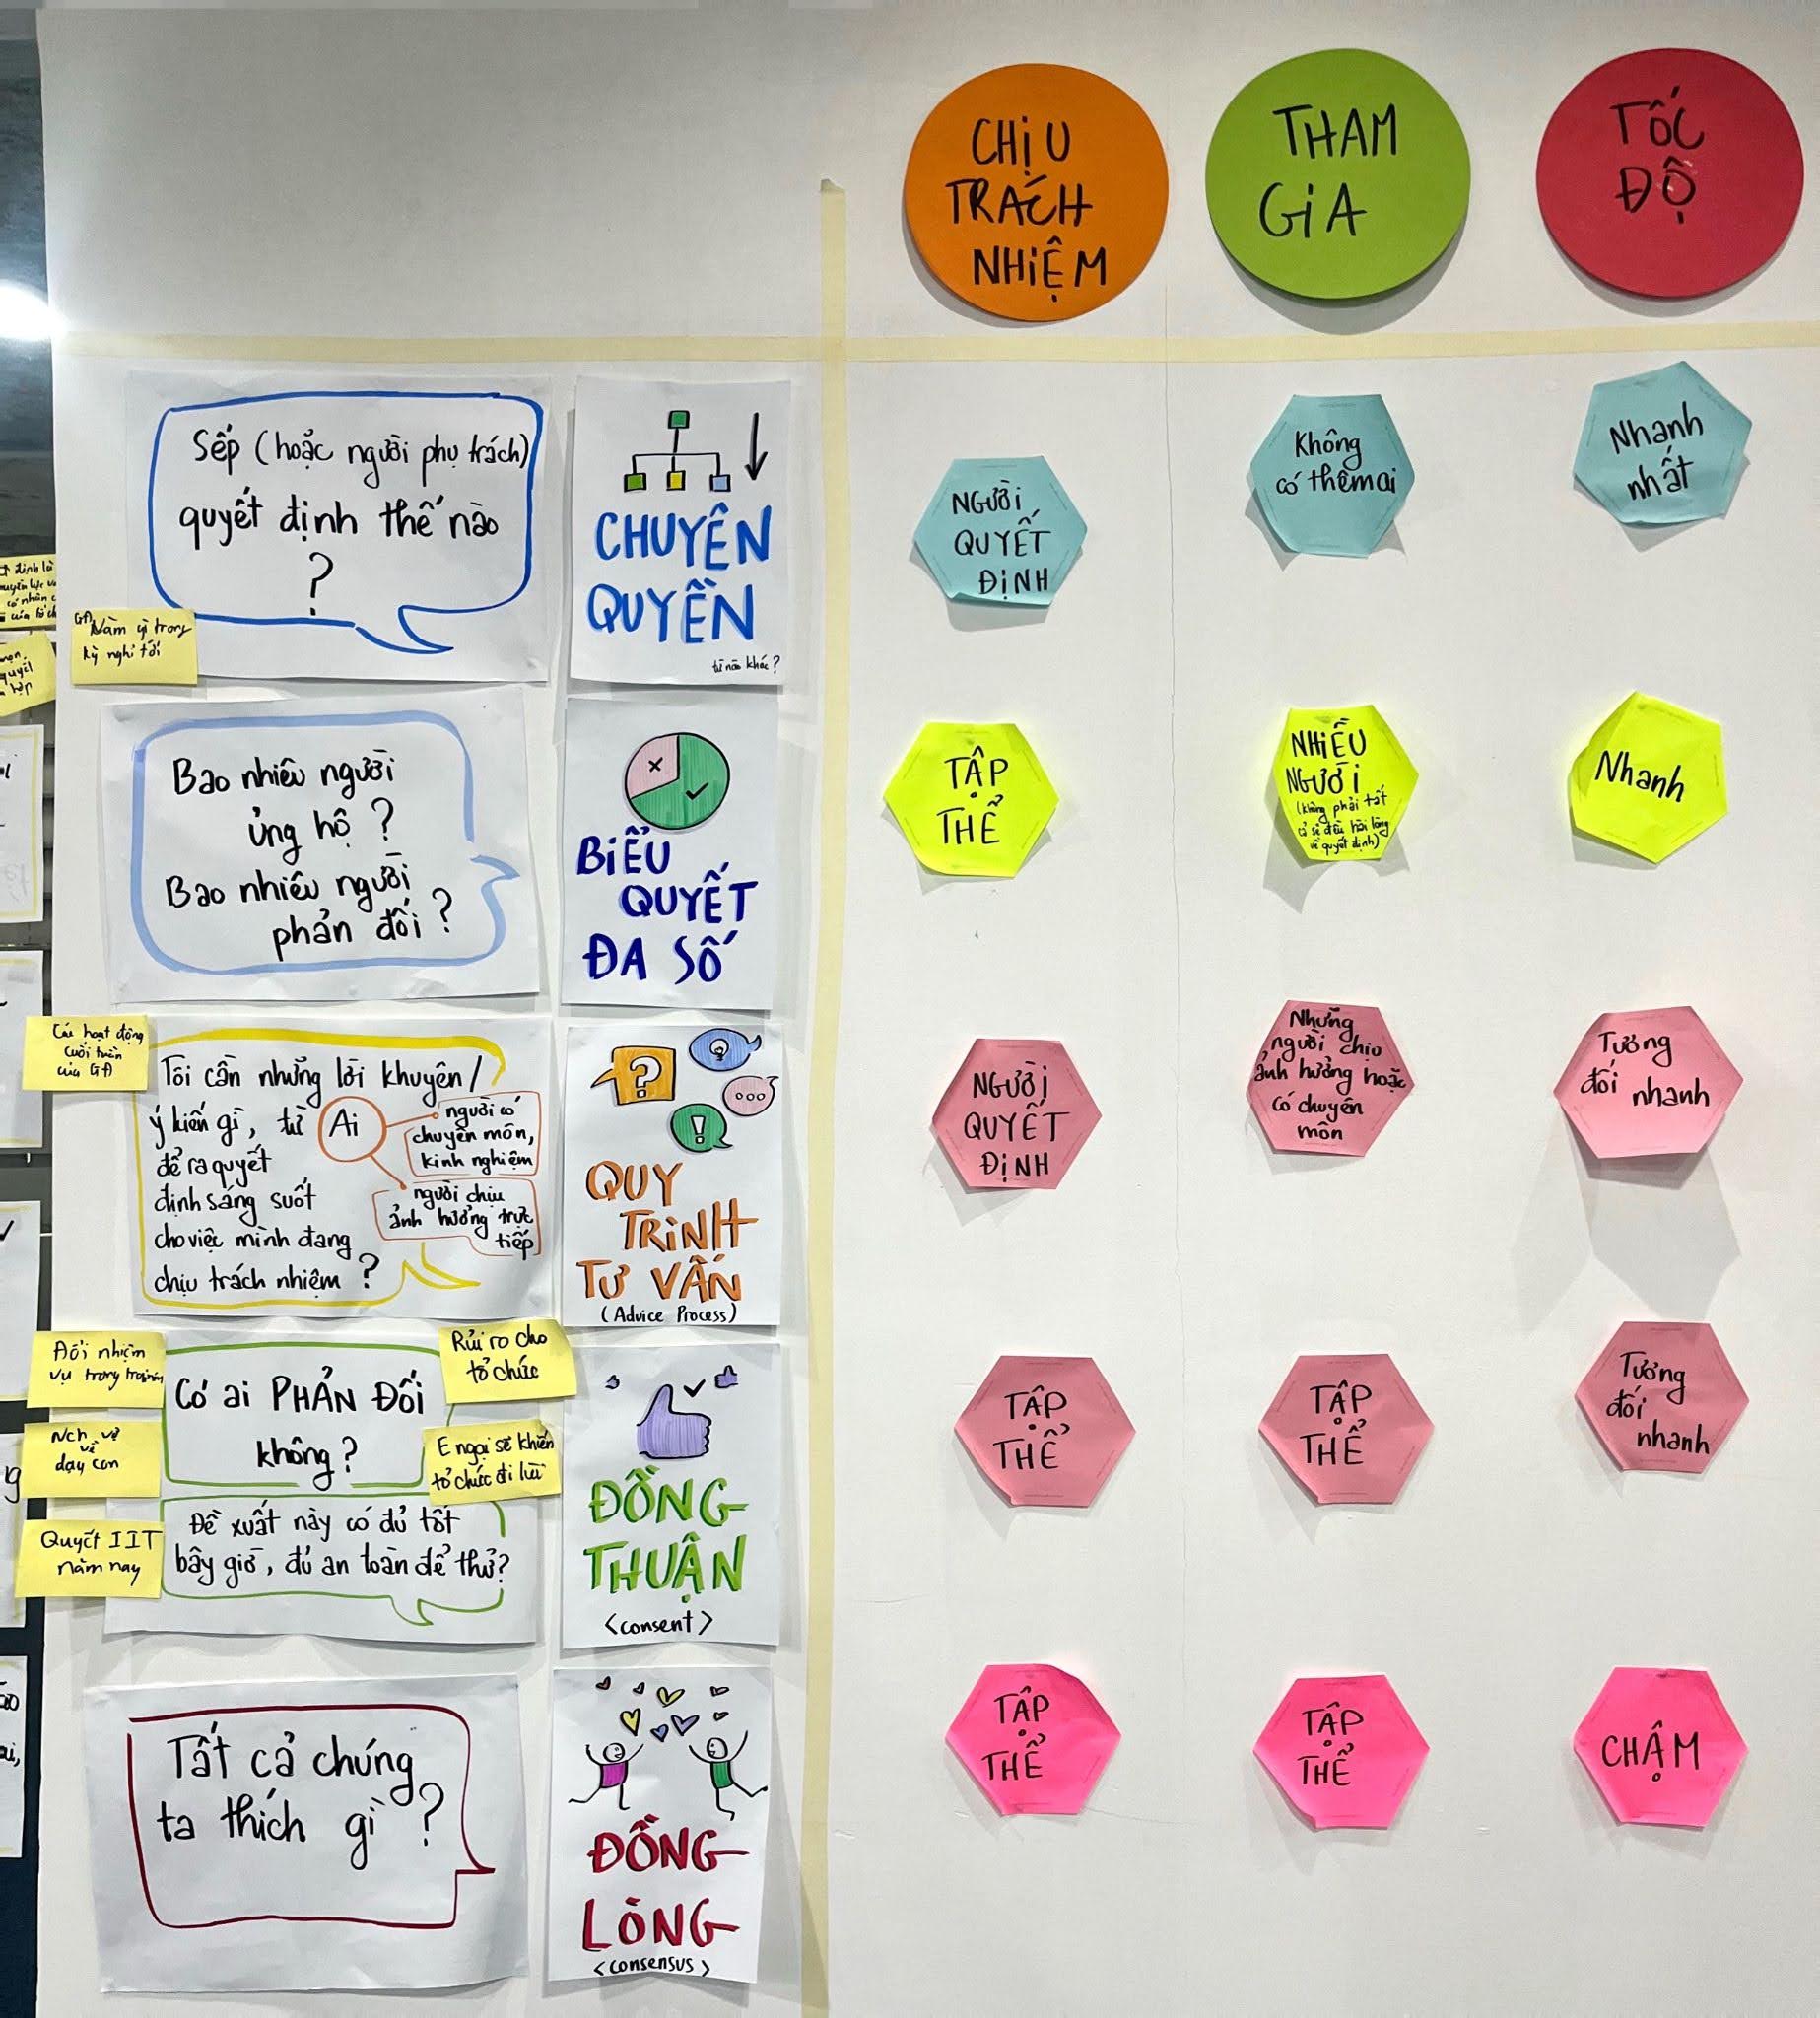 CHỊU
TRÁCH
NHIỆM
THAM
GIA
TỐC
ĐỘ
Sếp (hoặc người phụ trách)
quyết định thế nào
?
CHUYÊN
QUYỀN
từ nào khác?
GĐ
Làm gì trong
kỳ nghỉ tới
NGƯỜI
QUYẾT
ĐỊNH
Không
có thêm ai
Nhanh
nhất
Bao nhiêu người
ủng hộ?
Bao nhiêu người
phản đối?
BIỂU
QUYẾT
ĐA SỐ
TẬP
THỂ
NHIỀU
NGƯỜI
(không phải tất
cả sẽ đều hài lòng
về quyết định)
Nhanh
Các hoạt động
cuối tuần
của GĐ
Tôi cần những lời khuyên/
ý kiến gì, từ Ai
để ra quyết
định sáng suốt
cho việc mình đang
chịu trách nhiệm?
người có
chuyên môn,
kinh nghiệm
người chịu
ảnh hưởng trực
tiếp
QUY
TRÌNH
TƯ VẤN
(Advice Process)
NGƯỜI
QUYẾT
ĐỊNH
Những
người chịu
ảnh hưởng hoặc
có chuyên
môn
Tương
đối nhanh
Đổi nhiệm
vụ trong
Nch vợ
về
dạy con
Quyết IIT
năm nay
Rủi ro cho
tổ chức
E ngại sẽ khiến
tổ chức đi lùi
Có ai PHẢN ĐỐI
không?
Đề xuất này có đủ tốt
bây giờ, đủ an toàn để thử?
ĐỒNG
THUẬN
<consent>
TẬP
THỂ
TẬP
THỂ
Tương
đối
nhanh
Tất cả chúng
ta thích gì?
ĐỒNG
LÒNG
<consensus>
TẬP
THỂ
TẬP
THỂ
CHẬM